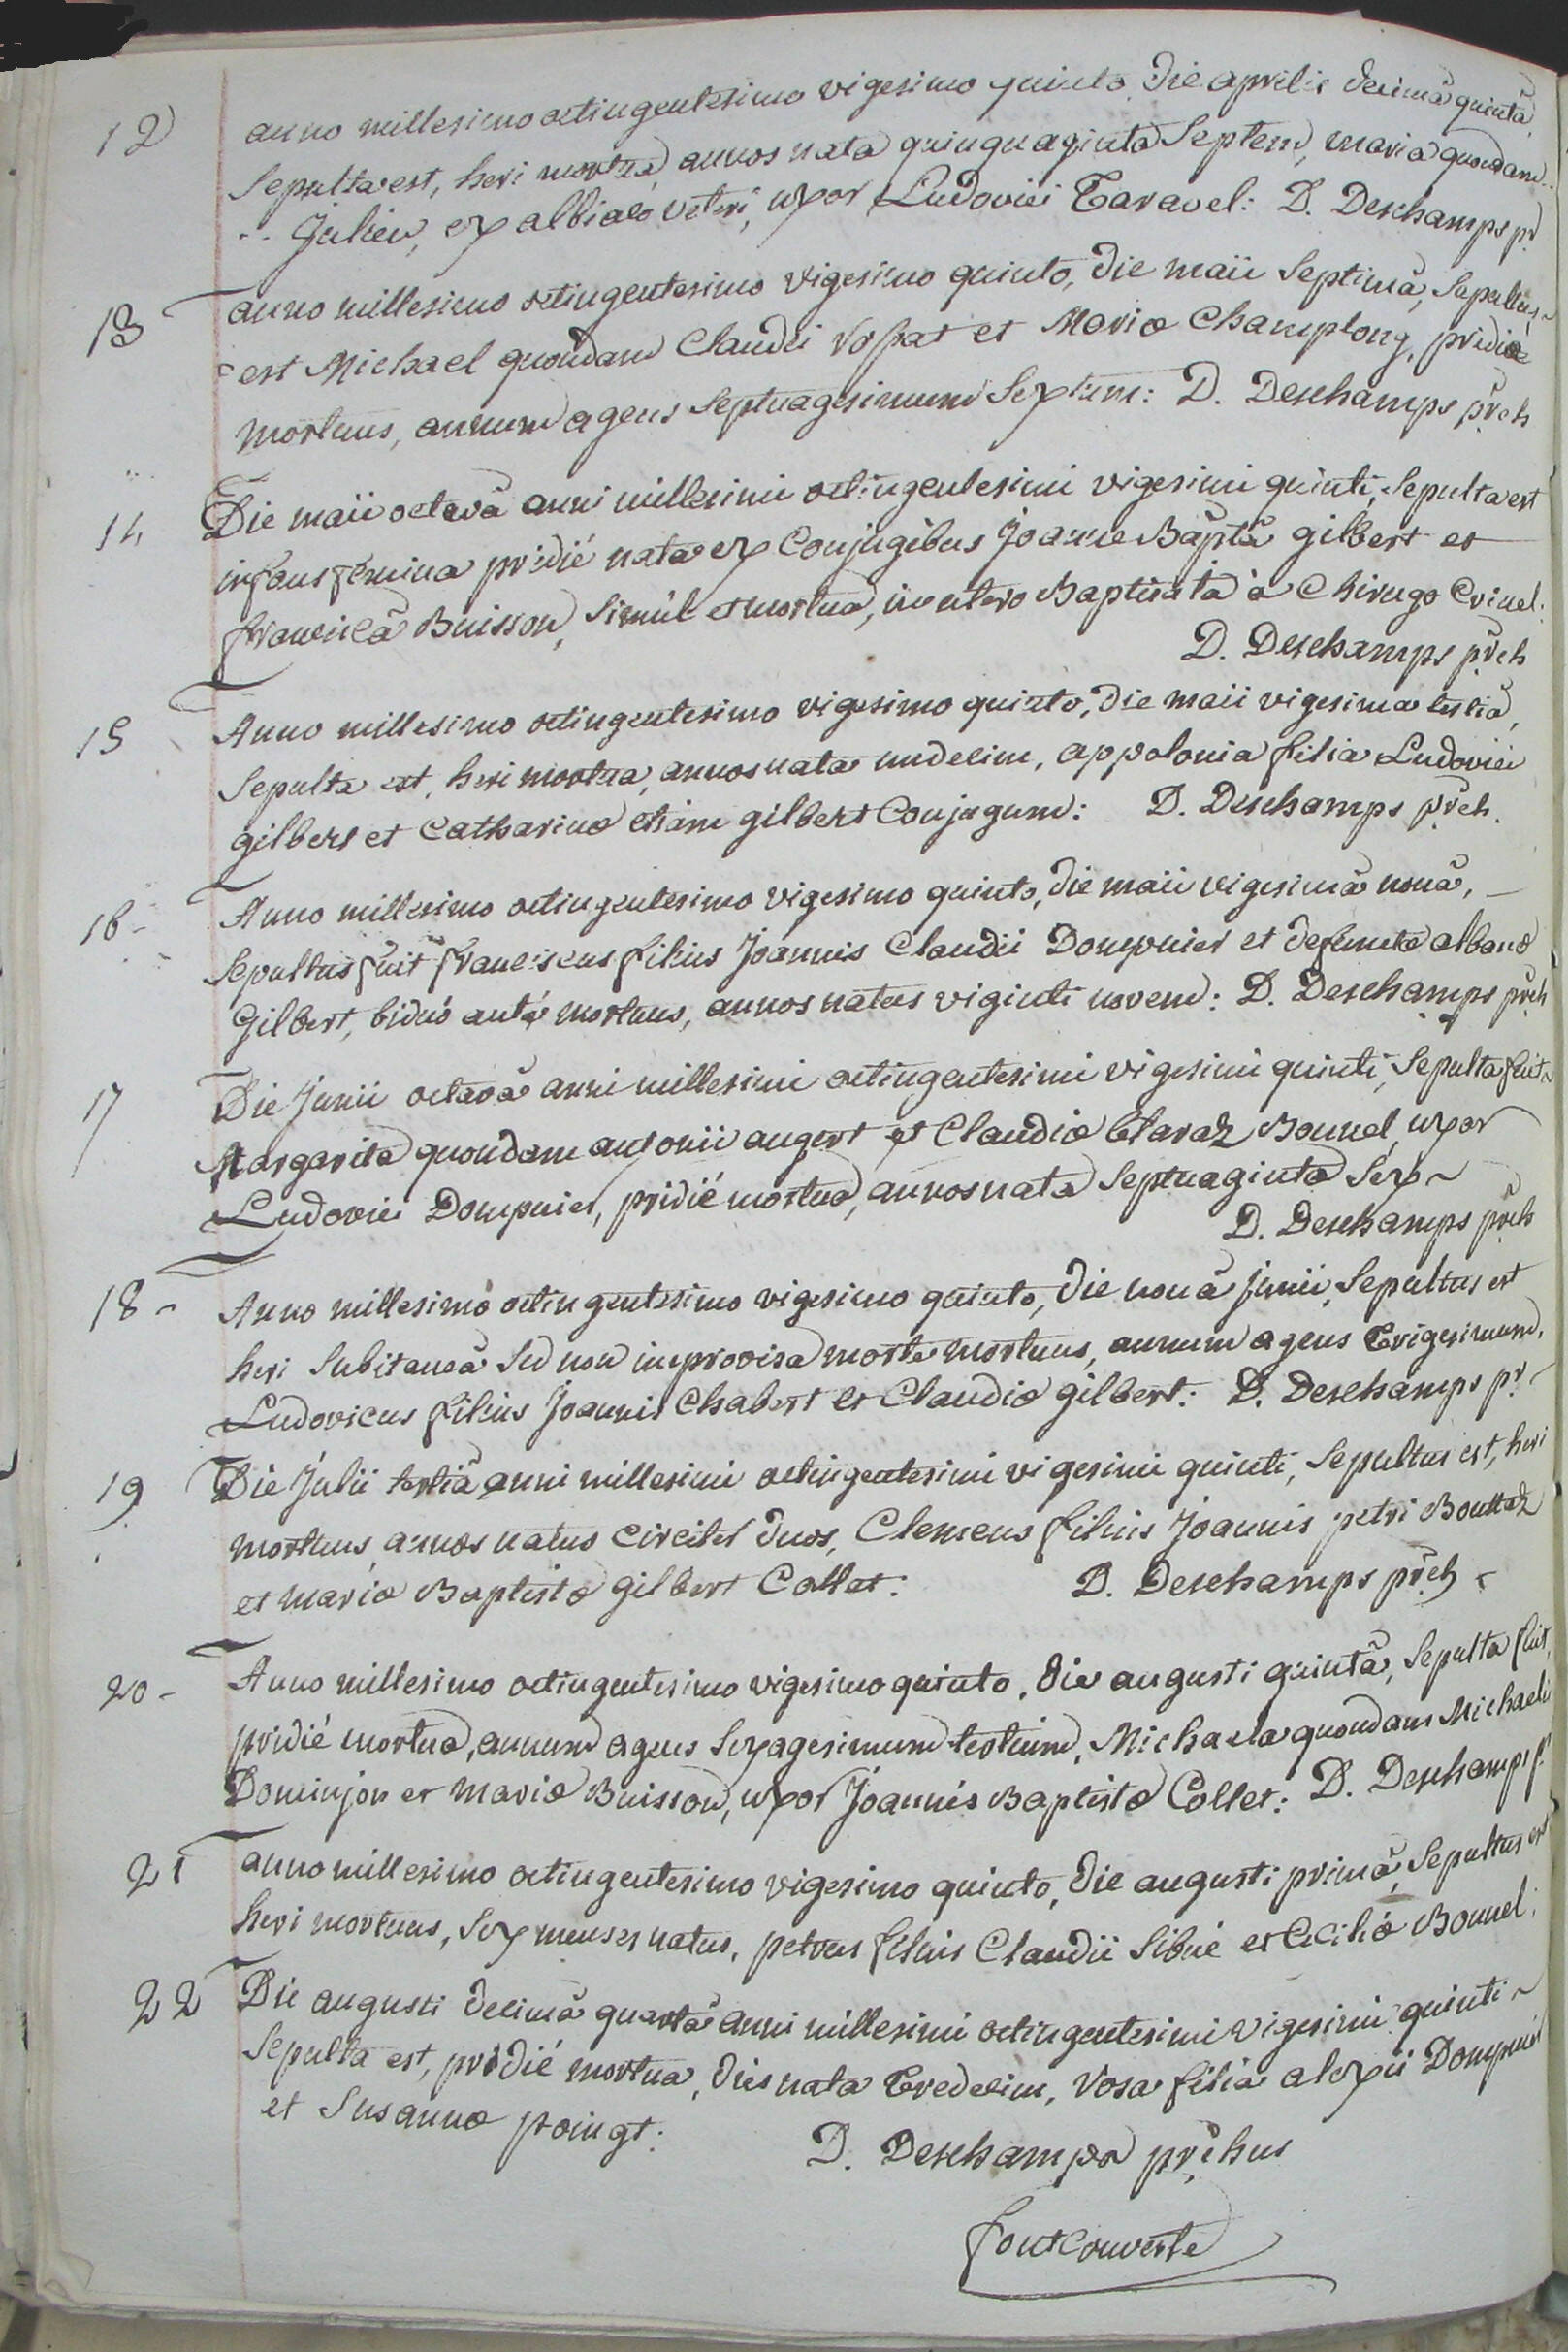 12 anno millesimo octingentesimo vigesimo quinto die aprilis decimâ quintâ
sepulta est, heri mortua, annos nata quinquaginta septem, maria quondam
.. Julien, ex albiaco veteri, uxor Ludovici Taravel: D. Deschamps pr
13 anno millesimo octingentesimo vigesimo quinto, die maii septimâ, sepultus
est Michael quondam Claudii Rossat et Mariæ Champlong, pridie
mortuus, annum agens septuagesimum sextum: D. Deschamps prch
14 Die maii octavâ anni millesimi octingentesimi vigesimi quinti, sepulta est
infans femina pridié nata ex conjugibus Joanne Baptâ gilbert et
franciscâ Buisson, simùl et mortua, in utero Baptisata à Chirugo Crinel:
D. Deschamps prch
15 Anno millesimo octingentesimo vigesimo quinto, die maii vigesima tertiâ,
sepulta est, heri mortua, annos nata undecim, appolonia filia Ludovici
gilbert et Catharinæ etiàm gilbert Conjugum: D. Deschamps prch.
16 - Anno millesimo octingentesimo vigesimo quinto, die maii vigesimâ nonâ, -
sepultus fuit franciscus filius Joannis Claudii Dompnier et defunctæ albanæ
Gilbert, biduò antè mortuus, annos natus viginti novem: D. Deschamps prch
17 Die Junii octavâ anni millesimi octingentesimi vigesimi quinti, sepulta fuit
Margarita quondam antonii augert et Claudiæ Claraz Bonnel, uxor
Ludovici Dompnier, pridié mortua, annos nata septuaginta sex ~
D. Deschamps prch
18 - Anno millesimo octingentesimo vigesimo quinto, die nonâ junii, sepultus est
heri subitaneâ sed non improvisa morte mortuus, annum agens trigesimum,
Ludovicus filius Joannis Chabert et Claudiæ gilbert: D. Deschamps pr
19 Die Julii tertiâ anni millesimi octingentesimi vigesimi quinti, sepultus est, heri
mortuus, annos natus circiter duos, Clemens filius Joannis petri Bouttaz
et mariæ Baptistæ gilbert Collet: D. Deschamps prch
20 - Anno millesimo octingentesimo vigesimo quinto, die augusti quintâ, sepulta fuit,
pridié mortua, annum agens sexagesimum tertium, Michaela quondam Michaelis
Dominjon et mariæ Buisson, uxor Joannis Baptistæ Collet: D. Deschamps p.
21 anno millesimo octingentesimo vigesimo quinto, die augusti primâ, sepultus est
heri mortuus, sex menses natus, petrus filius Claudii Sibué et Ceciliæ Bonnel:
22 Die augusti decimâ quartâ anni millesimi octingentesimi vigesimi quinti ~
sepulta est, pridié mortua, dies nata tredecim, rosa filia alexii Dompnier
et Susannæ poingt:
D. Deschamps prchus
fontcouverte